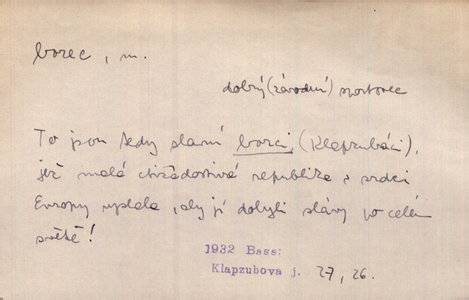 borec, m.
dobrý (závodní) sportovec
To jsou tedy slavní borci, (Klapzubáci),
jež malá ctižádostivá republika v srdci
Evropy vyslala, aby jí dobyli slávy po celém
světě!
1932 Bass:
Klapzubova j. 27, 26.